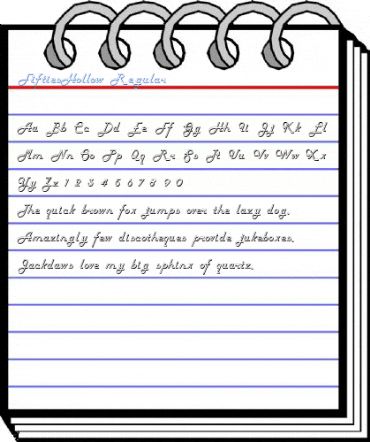 FiftiesHollow Regular
Aa Bb Cc Dd Ee Ff Gg Hh Ii Jj Kk Ll
Mm Nn Oo Pp Qq Rr Ss Tt Uu Vv Ww Xx
Yy Zz 1 2 3 4 5 6 7 8 9 0
The quick brown fox jumps over the lazy dog.
Amazingly few discotheques provide jukeboxes.
Jackdaws love my big sphinx of quartz.